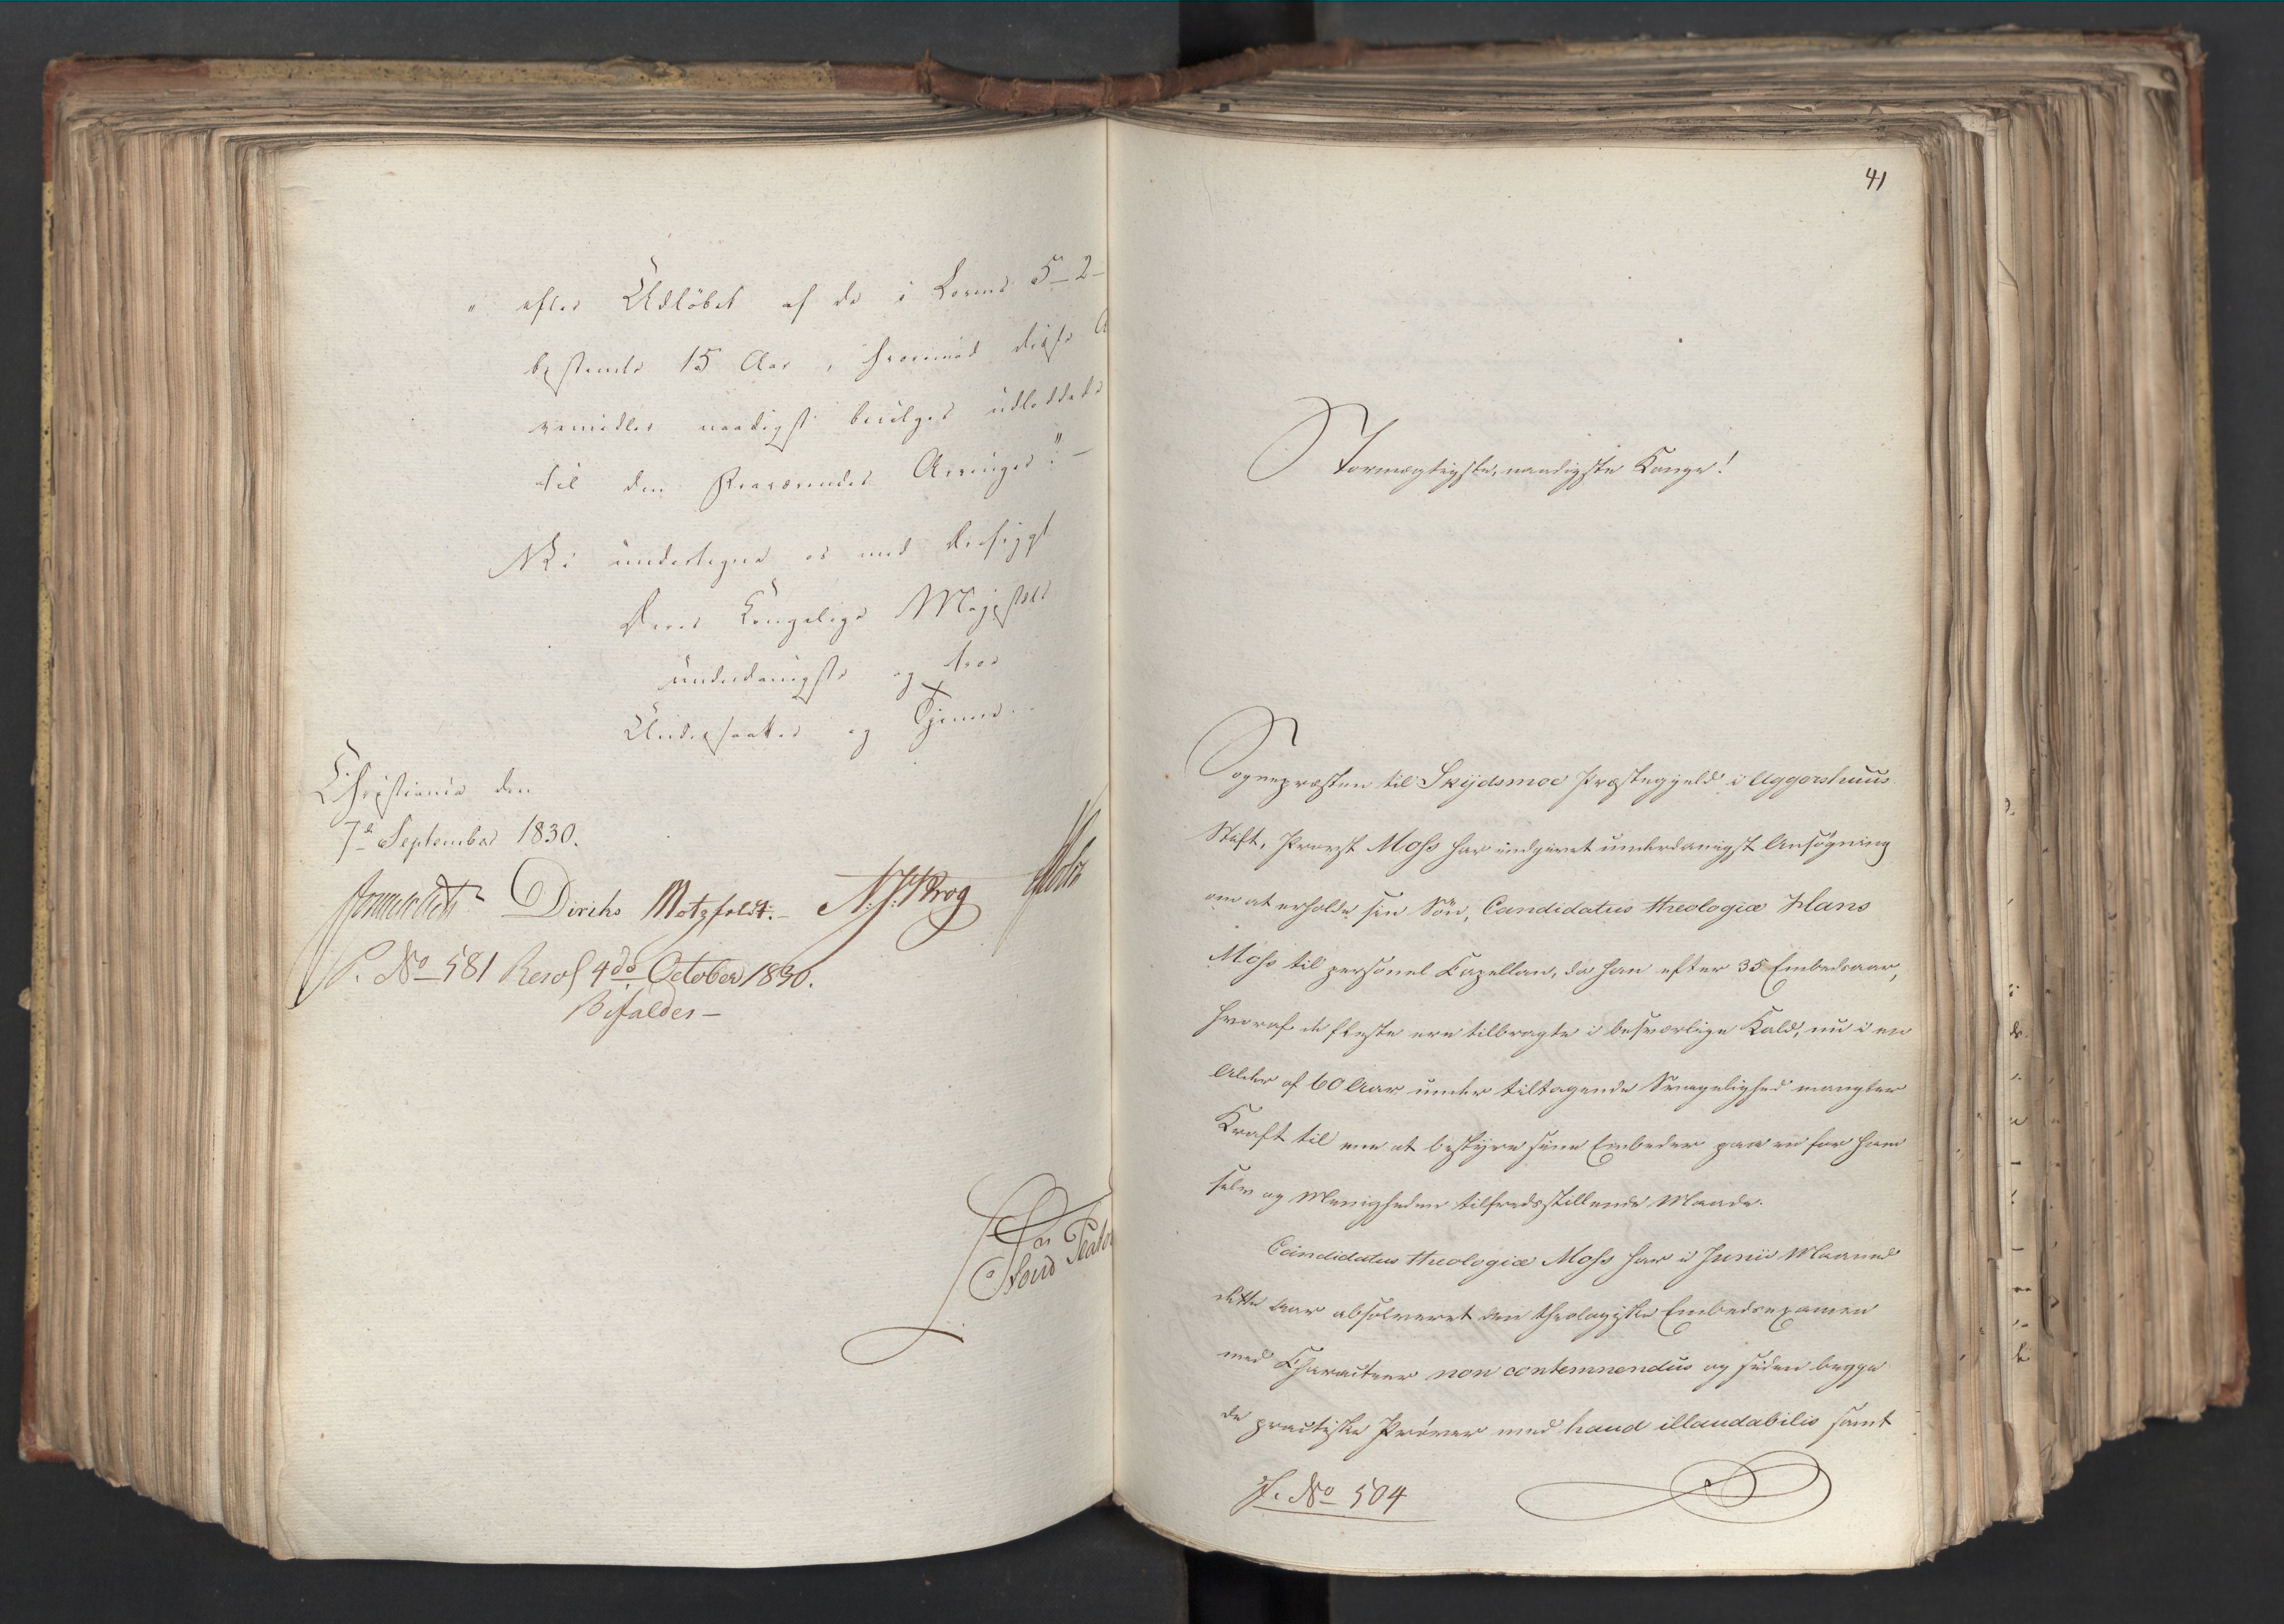 " efter Udløbet af de i Lovens 5-2-
bestemte 15 Aar, hvorimod disse
midler naadigst bevilges udloddede
til den Fraværendes Arvinger". -
Vi undertegne os med Dybsigt
Deres Kongelige Majestæts
underdanigste og troe
Undersaatter og Tjenere.
Christiania den
7de September 1830.
Diriks Motzfeldt. - N. J. Krog Holst
P. No 581 Resol 4de October 1830.
Bifaldes -
41
Stormægtigste, naadigste Konge!
Sognepræsten til Skydsmoe Præstegjeld i Aggershuus
Stift, Provst Moss har indgivet underdanigst Ansøgning
om at erholde sin Søn, Candidatus theologiæ Hans
Moss til personel Capellan, da han efter 35 Embedsaar,
hvoraf de fleste ere tilbragte i besværlige Kald, nu i en
Alder af 60 Aar under tiltagende Svagelighed mangler
Kraft til ene at bestyre sine Embeder paa en for ham
selv og Menigheden tilfredsstillende Maade.
Candidatus theologiæ Moss har i Junii Maaned
dette Aar absolveret den theologiske Embedsexamen
med Characteer non contemnendus og siden begge
de practiske Prøver med haud illaudabilis samt
P. No 504